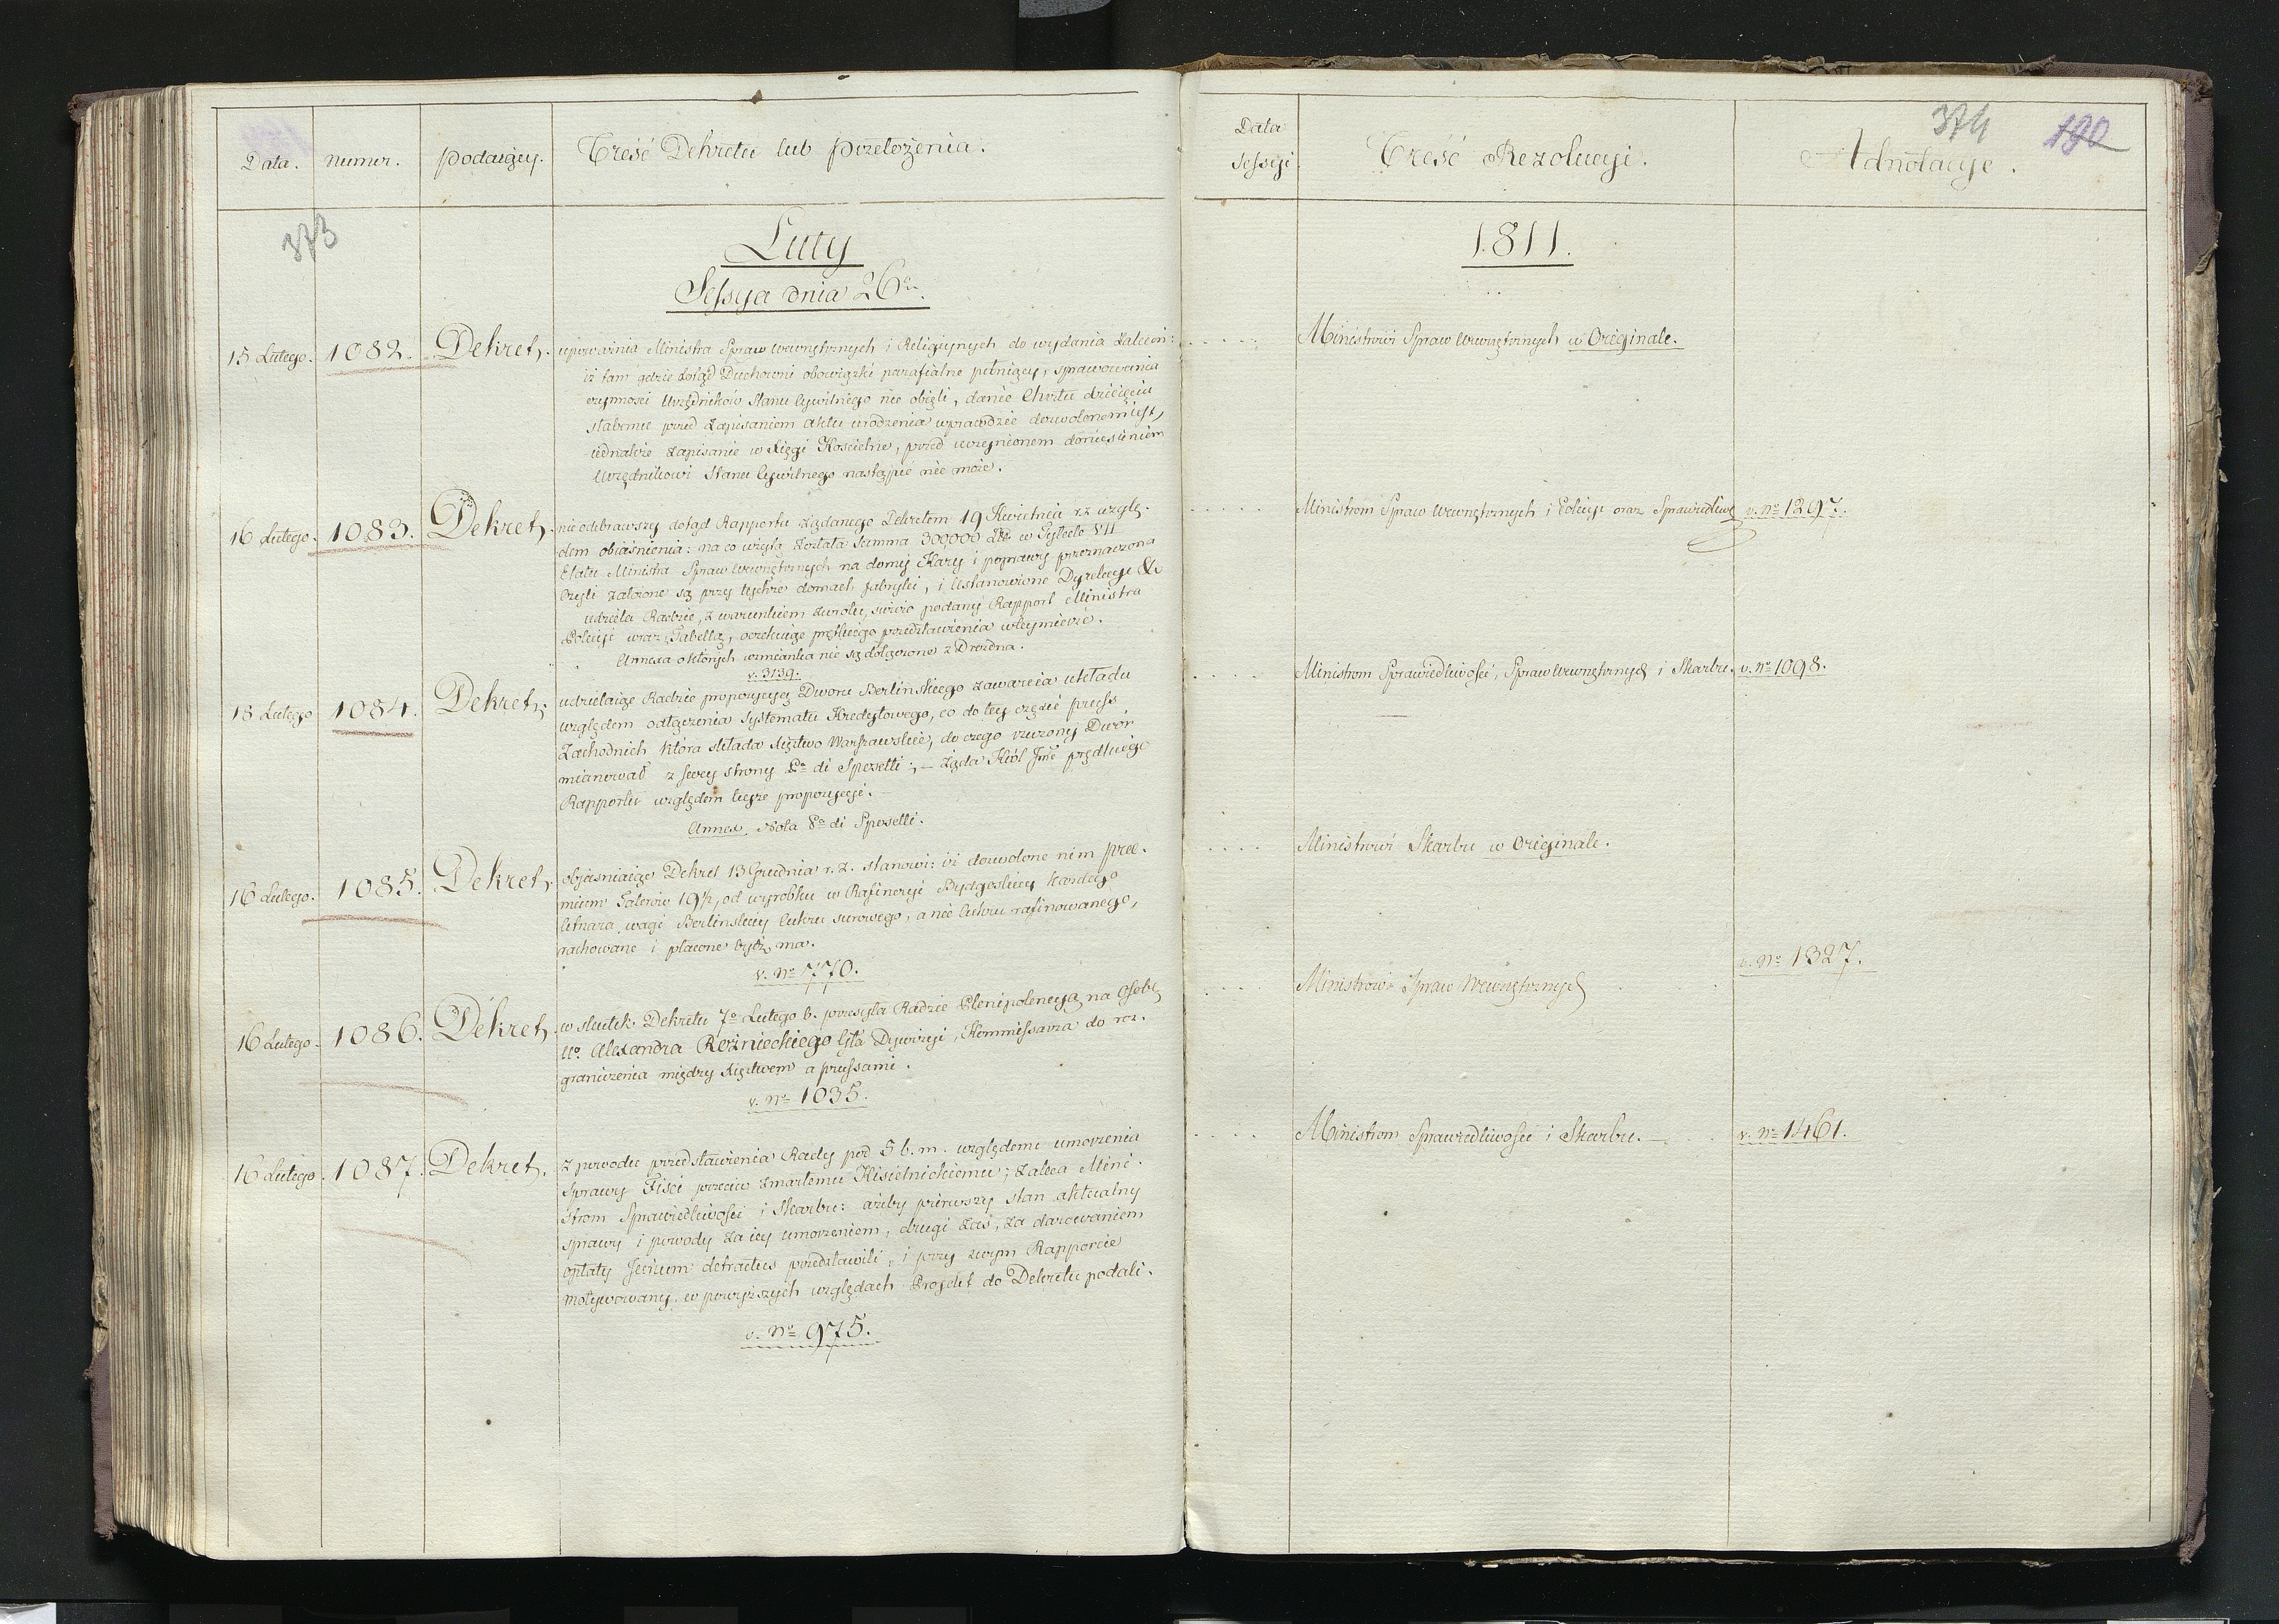 Data. numer. podaiący. Treść Dekretu lub przełożenia.
373
Luty
Sessya dnia 26go.
15 Lutego. 1082. Dekret, upoważnia Ministra Spraw wewnętrznych i Religijnych do wydania zaleceń:
iż tam gdzie dotąd Duchowni obowiązki parafialne pełniący, sprawowania
czynności Urzędników Stanu Cywilnego nie obięli, danie Chrztu dziecięciu
słabemu przed zapisaniem Aktu urodzenia wprawdzie dozwolonem iest,
iednakże zapisanie w Xięgi Kościelne, przed uczynionem doniesieniem
Urzędnikowi Stanu Cywilnego nastąpić nie może.
16 Lutego. 1083. Dekret, nie odebrawszy dotąd Rapportu żądanego Dekretem 19 Kwietnia r.z. wzglę-
dem obiaśnienia: na co użytą została Summa 300,000 w Tytule VII
Etatu Ministra Spraw Wewnętrznych na domy Kary i poprawy przeznaczona
Czyli założone są przy tychże domach fabryki, i Ustanowione Dyrekcye &c
udziela Radzie, z warunkiem zwrotu, świeżo podany Rapport Ministra
Policyi wraz Tabellą, oczekuiąc prętkiego przedstawienia w tey mierze.
Annexa o których wzmianka nie są dołączone z Drezdna.
v. 3139.
18 Lutego 1084. Dekret, udzielaiąc Radzie propozycyą Dworu Berlińskiego zawarcia układu
względem odłączenia Systematu Kredytowego, co do tey części pruss
Zachodnich która składa Xięstwo Warszawskie, do czego rzeczony Dwór
mianował z swey strony Pa di Speretti; — żąda Król Jmć prędkiego
Rapportu względem teyże propozycyi. —
Annex. Nota Pa di Speretti.
16 Lutego. 1085. Dekret, obiaśniaiąc Dekret 13 Grudnia r.z. stanowi: iż dozwolone nim pree-
mium Talerów 19½, od wyrobku w Rafineryi Bydgoskiey każdego
Cetnara wagi Berlińskiey Cukru surowego, a nie Cukru rafinowanego,
rachowane i płacone bydź ma.
v. No 770.
16 Lutego. 1086. Dekret, w skutek Dekretu 7o Lutego b. przesyła Radzie Plenipotencyą na Osobę
Uo Alexandra Rożnieckiego Gła Dywizyi, Kommissarza do roz-
graniczenia między Xięstwem a prussami.
v. No 1035.
16 Lutego. 1087. Dekret. z powodu przedstawienia Rady pod 5 b. m. względem umorzenia
Sprawy Fisci przeciw zmarłemu Kisielnickiemu; zaleca Mini-
strom Sprawiedliwości i Skarbu: ażeby pierwszy stan aktualny
sprawy i powody za iey umorzeniem, drugi zaś, za darowaniem
opłaty detractus przedstawili, i przy swym Rapporcie
motywowany w powyższych względach Projekt do Dekretu podali.
v. No 975.
Data Sessyi Treść Rezolucyi. Adnotacye.
374 190
1811.
Ministrowi Spraw Wewnętrznych w Originale.
Ministrom Spraw Wewnętrznych i Policyi oraz Sprawiedliwo v. No 1297.
Ministrom Sprawiedliwości, Spraw Wewnętrznych i Skarbu. v. No 1098.
Ministrowi Skarbu w Originale.
v. No 1327.
Ministrowi Spraw Wewnętrznych
Ministrom Sprawiedliwości i Skarbu. — v. No 1461.